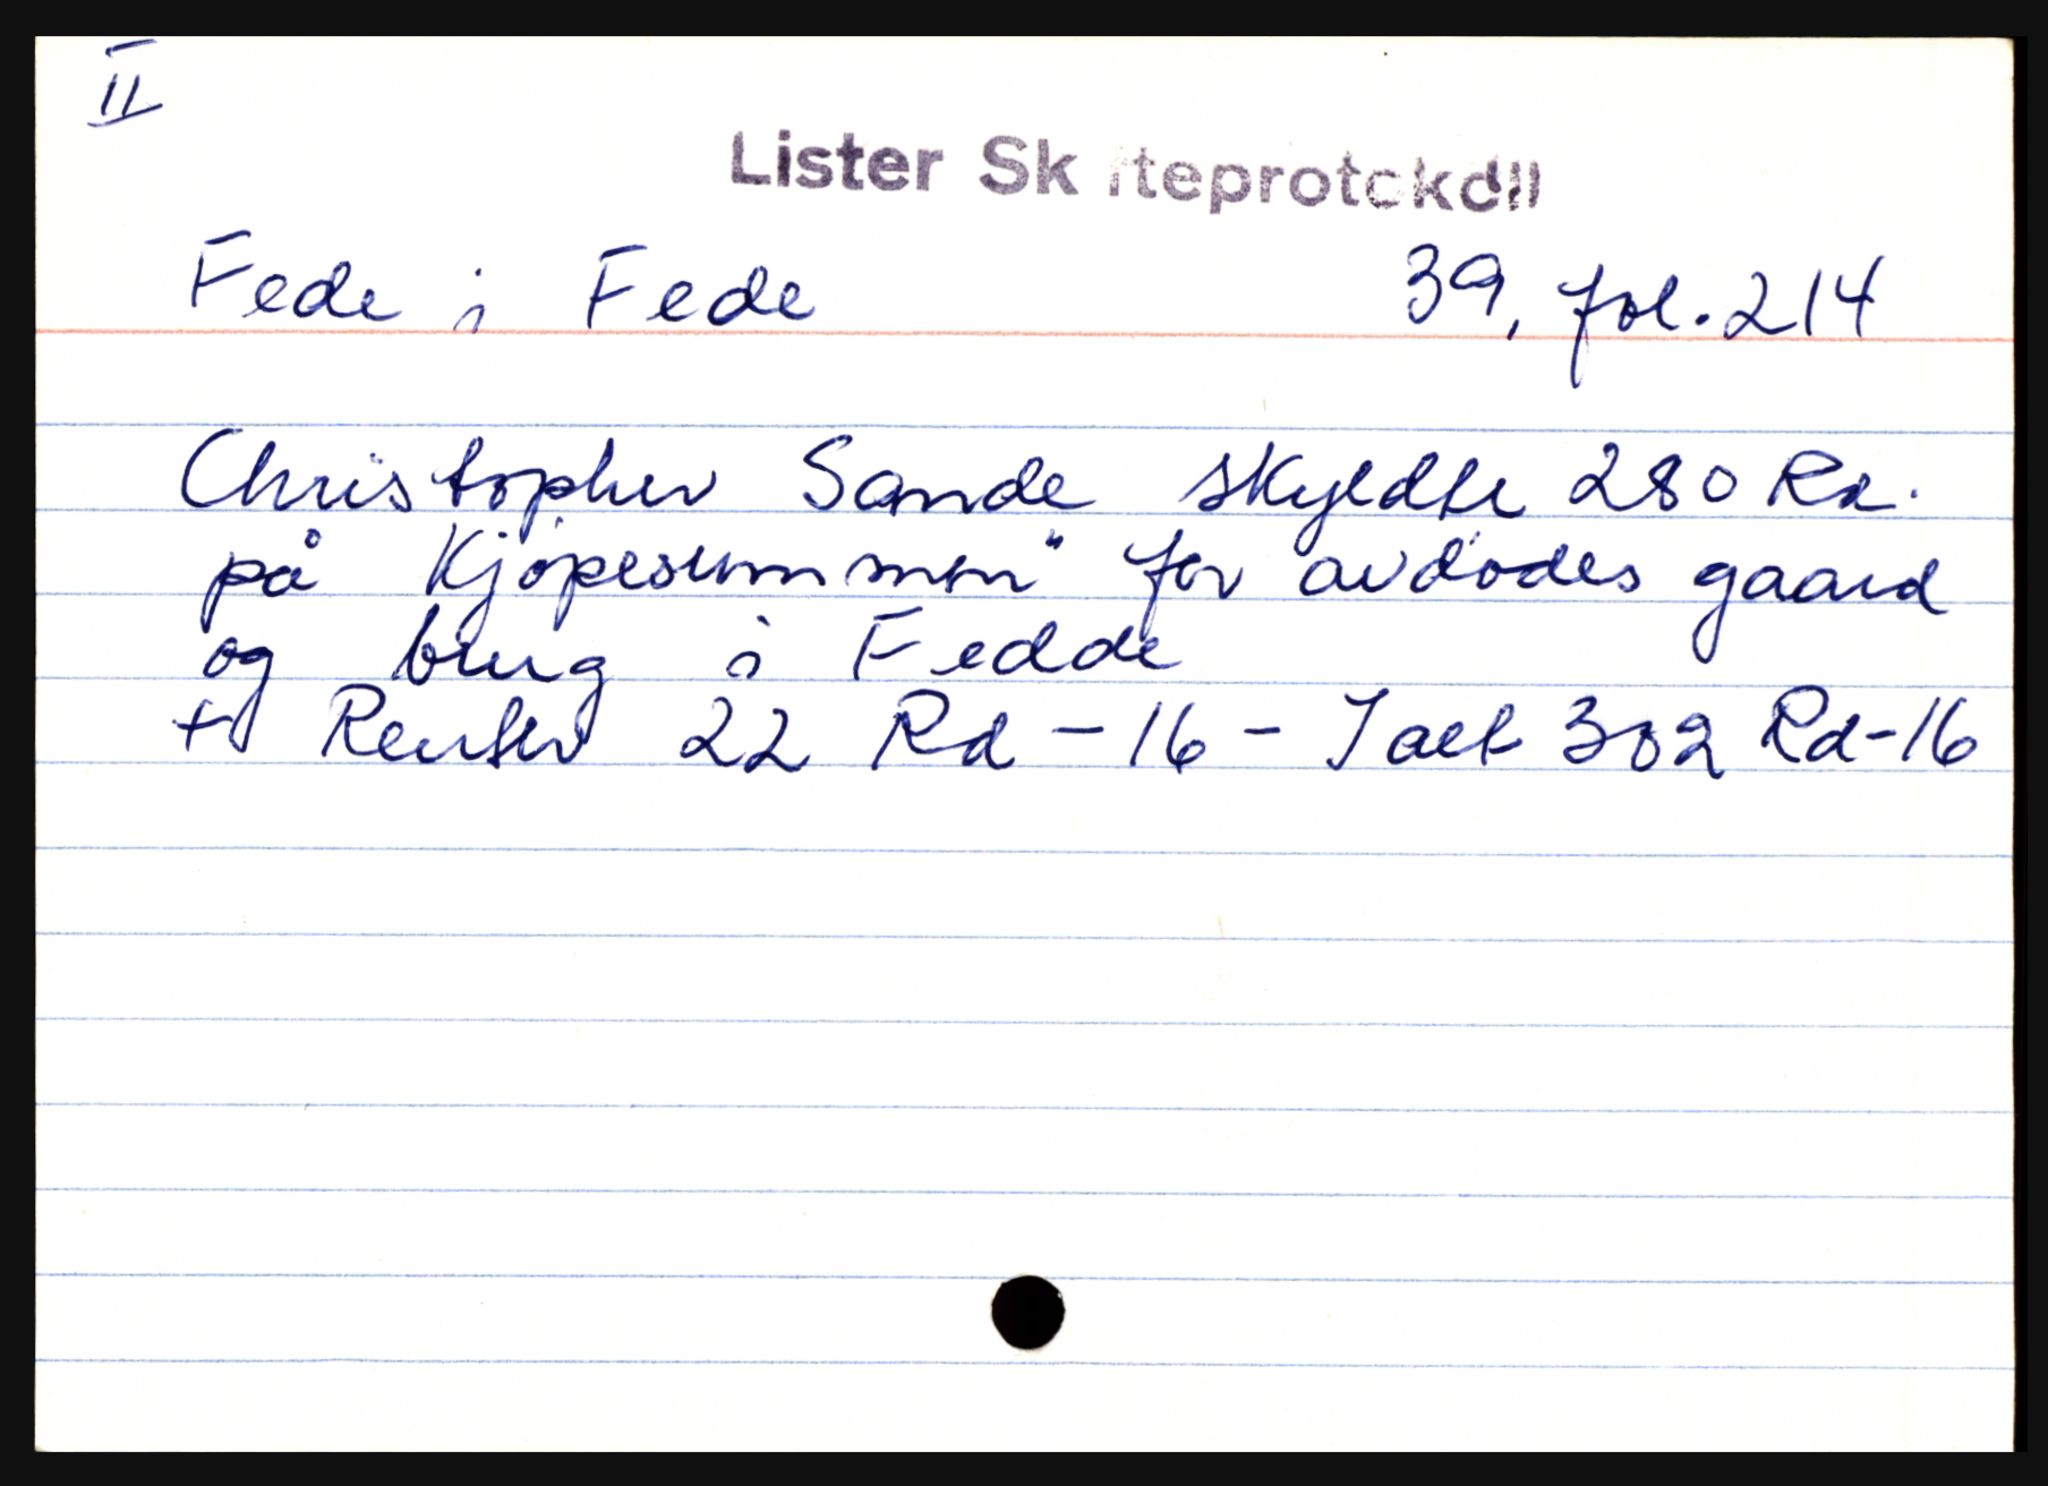 II
Lister Skifteprotokoll
Fede i Fede 39, fol. 214
Christopher Sande skyldte 280 Rd.
på Kjøpesummen" for avdødes gaard
og brug i Fedde
+ Renter 22 Rd - 16 - I alt 302 Rd - 16